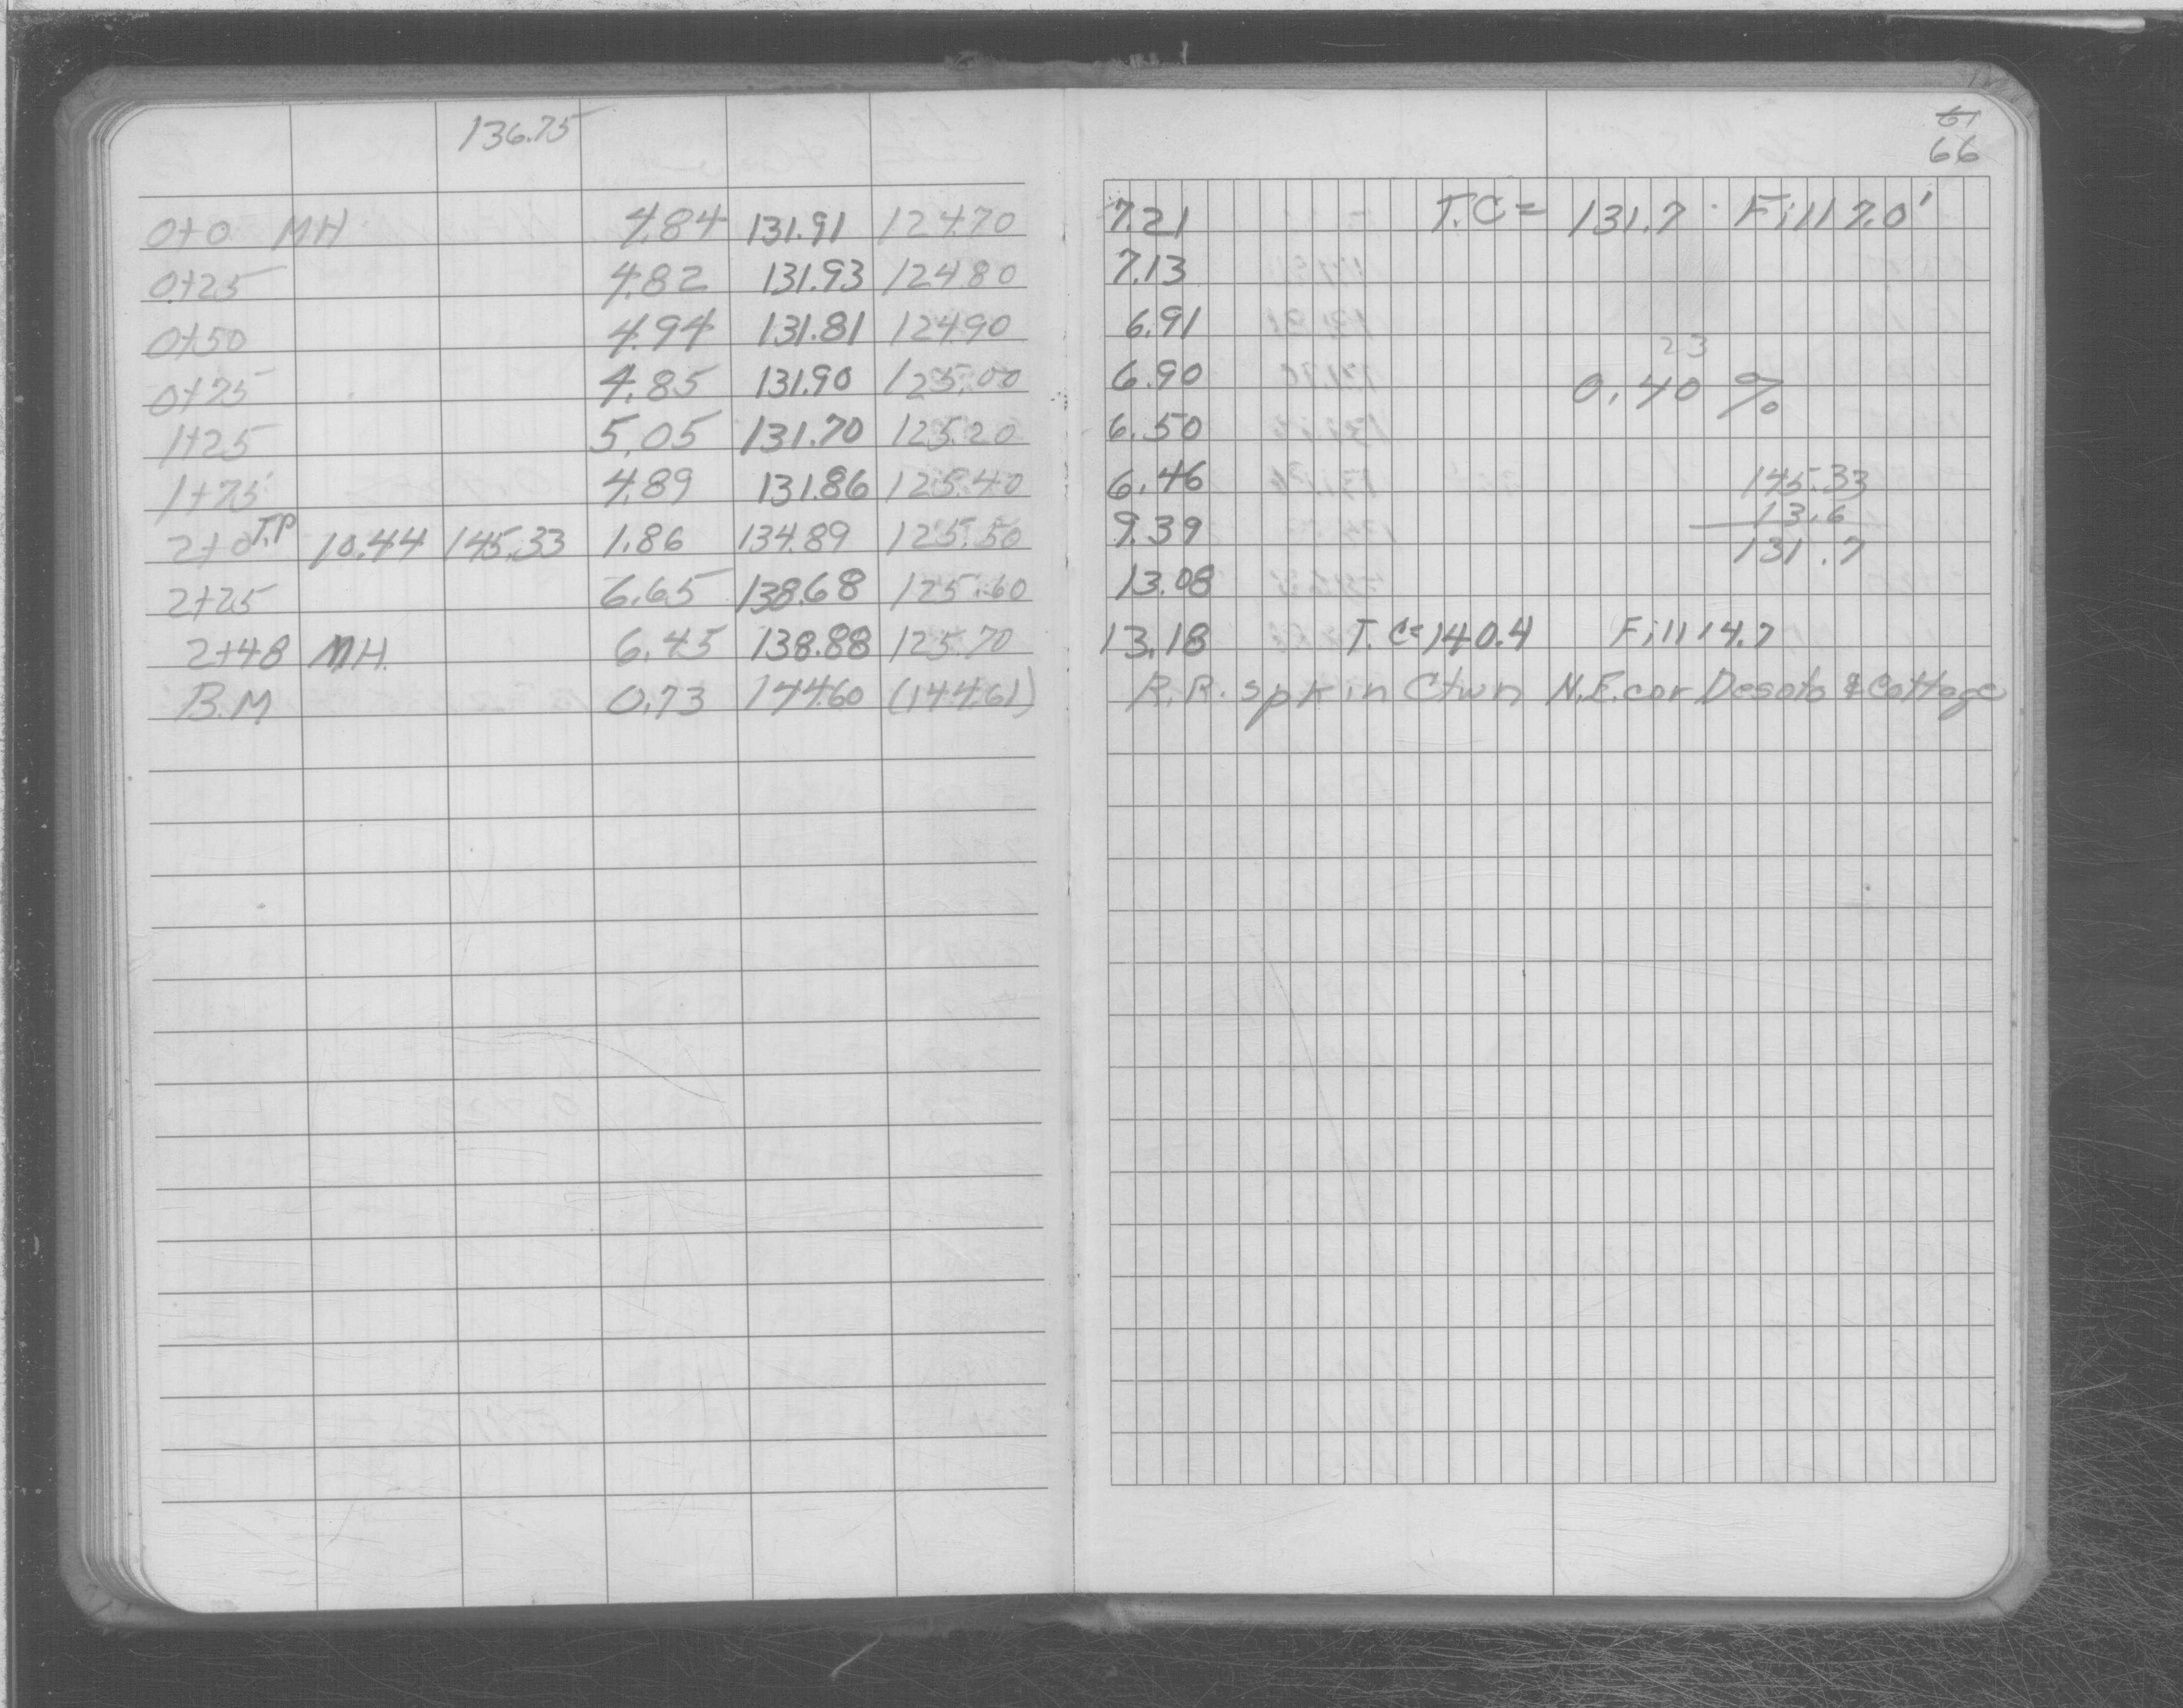 136.75
0+0 MH 4.84 131.91 124.70
0+25 4.82 131.93 124.80
0+50 4.94 131.81 124.90
0+75 4.85 131.90 125.00
1+25 5.05 131.70 125.20
1+75 4.89 131.86 125.40
2+0 T.P 10.44 145.33 1.86 134.89 125.50
2+25 6.65 138.68 125.60
2+48 MH. 6.45 138.88 125.70
B.M 0.73 144.60 (144.61)
61
66
7.21 T.C = 131.7 Fill 7.0'
7.13
6.91
23
6.90 0.40 %
6.50
6.46 145.33
13.6
9.39 131.7
13.08
13.18 T.C = 140.4 Fill 14.7
R.R. spk in Ctwn N.E. cor Desoto & Cottage